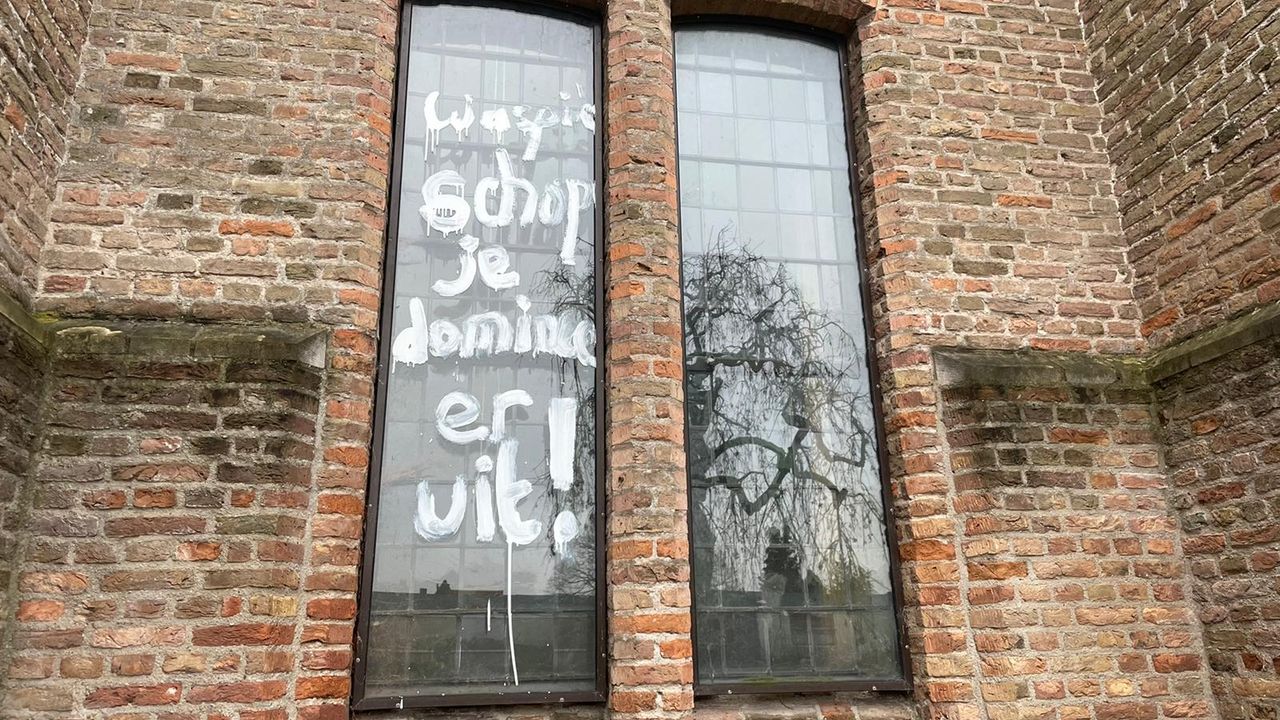 waspik
schop
je
dominee
er
uit!